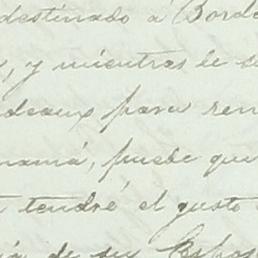 destinado á Bord
, y mientras le d
deaux para ren
mamá, puede que
tendré el gusto
de su Espos